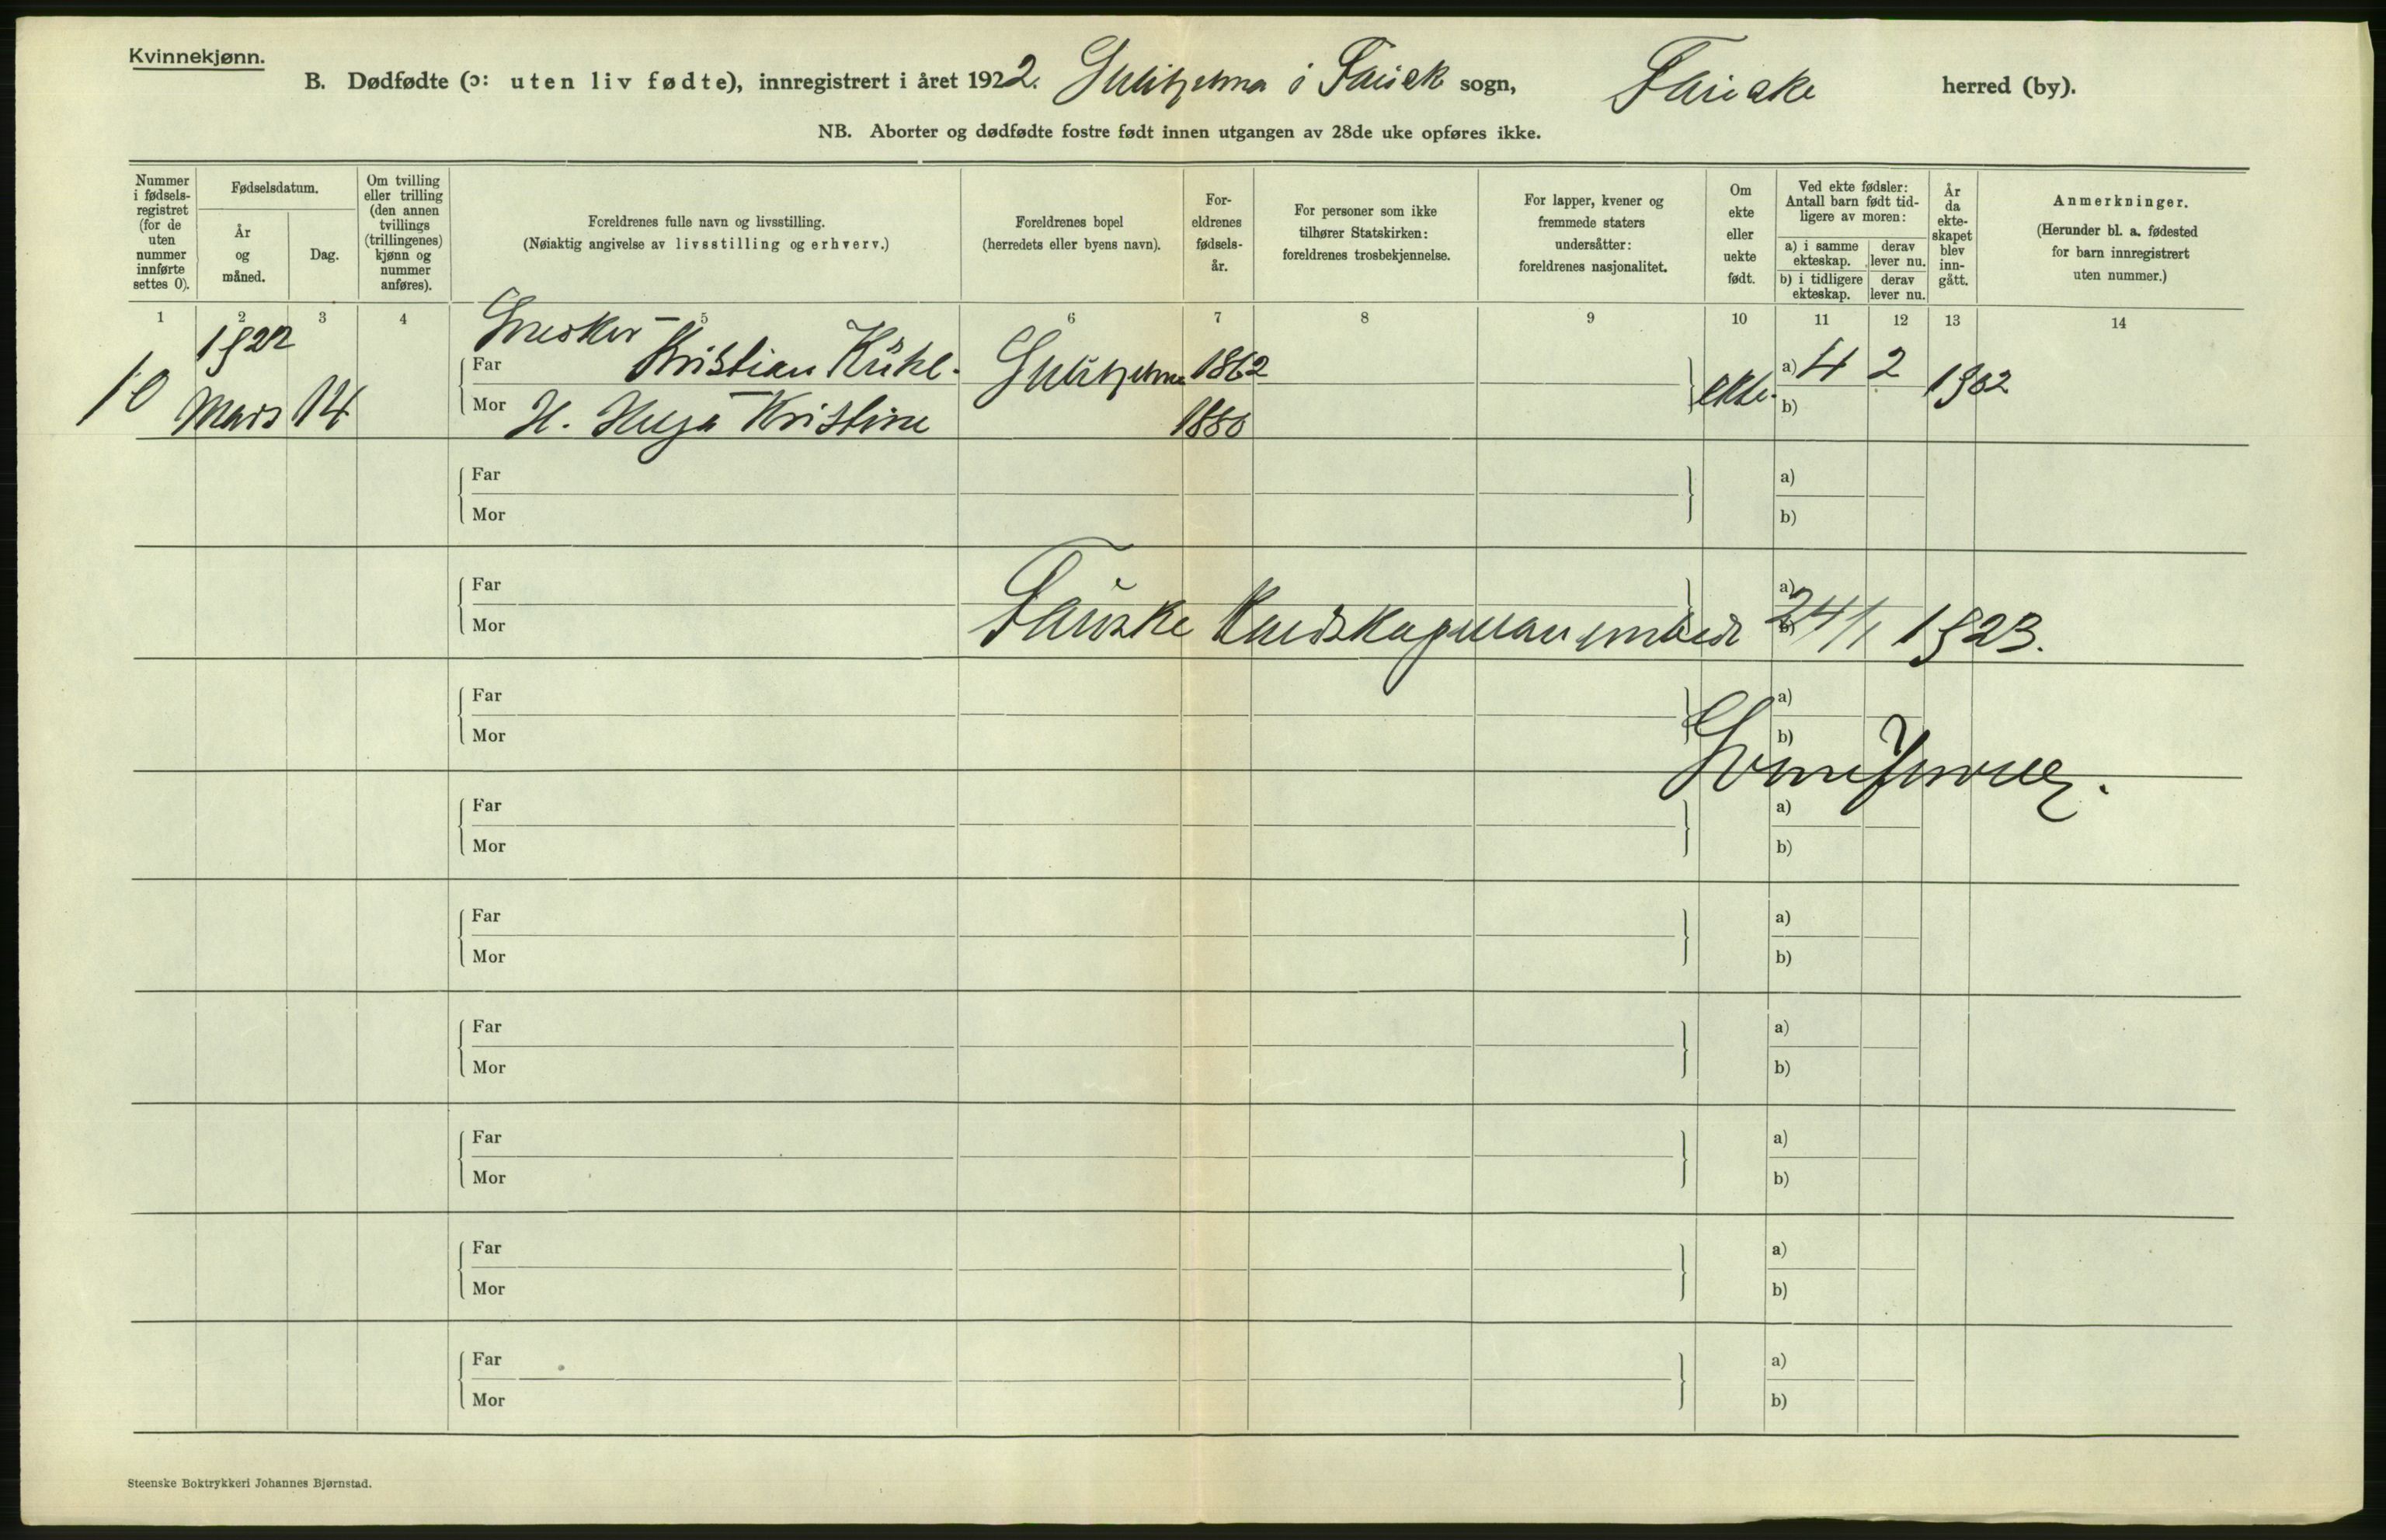 Kvinnekjønn.
B. Dødfødte (ɔ: uten liv fødte), innregistrert i året 1922. Sulitjelma i Fauske sogn, Fauske herred (by).
NB. Aborter og dødfødte fostre født innen utgangen av 28de uke opføres ikke.
Nummer i fødsels-registret (for de uten nummer innførte settes 0).
Fødselsdatum.
År og måned.
Dag.
Om tvilling eller trilling (den annen tvillings (trillingenes) kjønn og nummer anføres).
Foreldrenes fulle navn og livsstilling.
(Nøiaktig angivelse av livsstilling og erhverv.)
Foreldrenes bopel
(herredets eller byens navn).
For-eldrenes fødsels-år.
For personer som ikke tilhører Statskirken: foreldrenes trosbekjennelse.
For lapper, kvener og fremmede staters undersåtter: foreldrenes nasjonalitet.
Om ekte eller uekte født.
Ved ekte fødsler: Antall barn født tid-ligere av moren:
a) i samme ekteskap.
derav lever nu.
b) i tidligere ekteskap.
derav lever nu.
År da ekte-skapet blev inn-gått.
Anmerkninger.
(Herunder bl. a. fødested for barn innregistrert uten nummer.)
1 2 3 4 5 6 7 8 9 10 11 12 13 14
1922
Snekker
10 Mars 14 Far Kristian Kühl. Sulitjelma 1862 ekte. a) 4 2 1902
Mor H. Kristine 1880 b)
Far a)
Mor b)
Far a)
Mor b)
Fauske 24/1 1923.
Far a)
Mor b)
Far a)
Mor b)
Far a)
Mor b)
Far a)
Mor b)
Far a)
Mor b)
Far a)
Mor b)
Far a)
Mor b)
Steenske Boktrykkeri Johannes Bjørnstad.